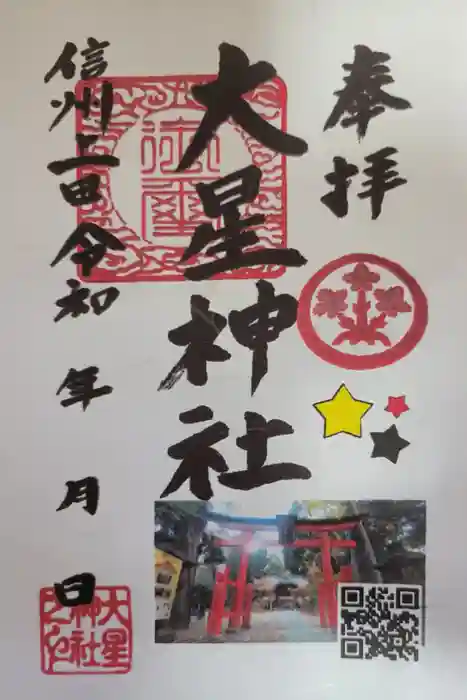 奉拝
大星神社
信州上田令和 年 月 日
大星
神社